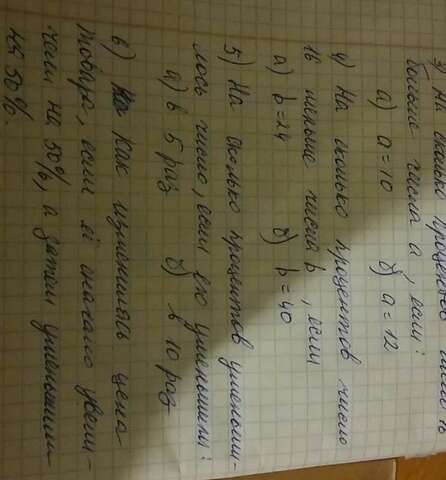 3) На сколько процентов число
больше числа a, если:
а) a = 10 б) a = 12
4) На сколько процентов число
16 меньше числа b, если
а) b = 24 б) b = 40
5) На сколько процентов уменьши-
лось число, если его уменьшили:
а) в 5 раз б) в 10 раз
в) Как изменилась цена
товара, если её сначало увели-
чели на 50%, а затем уменьшили
на 50%.